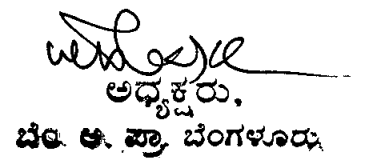 ಅಧ್ಯಕ್ಷರು,
ಬೆಂ. ಅ. ಪ್ರಾ. ಬೆಂಗಳೂರು